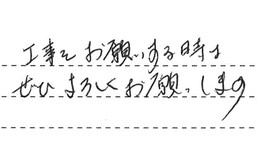 工事をお願いする時は
ぜひよろしくお願いします